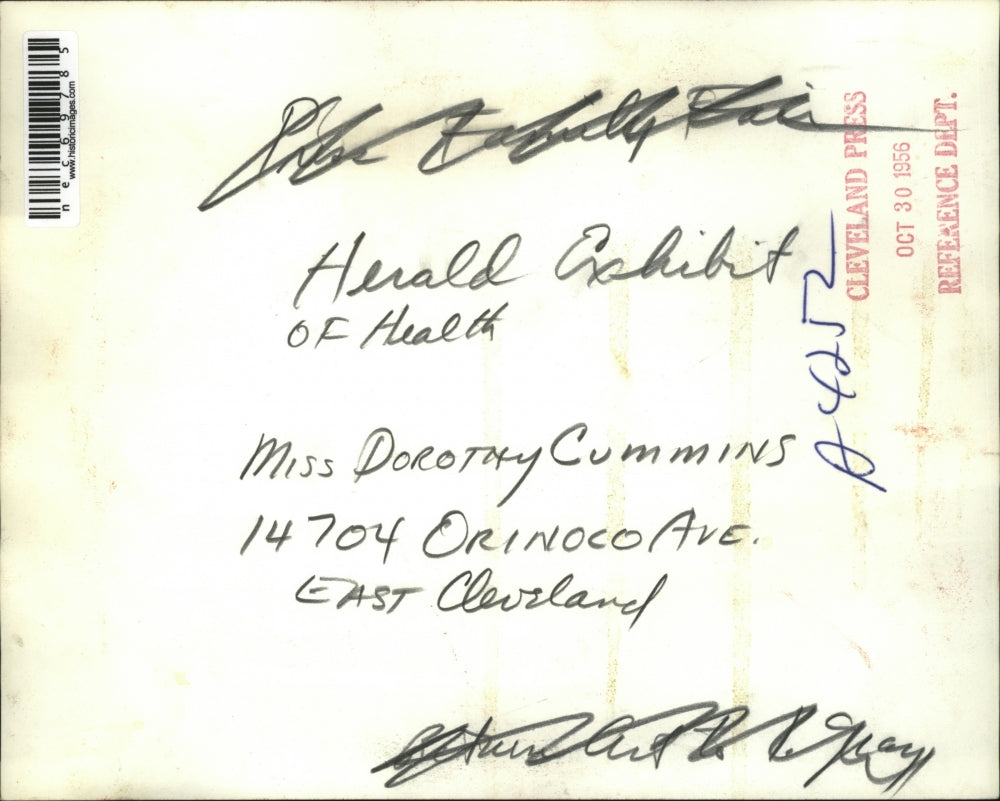 Press Family Fair
Herald Exhibit
OF Health
Miss DOROTHY CUMMINS
14704 ORINOCO AVE.
EAST Cleveland
A 4252
CLEVELAND PRESS
OCT 30 1956
REFERENCE DEPT.
nec69785
www.historicimages.com